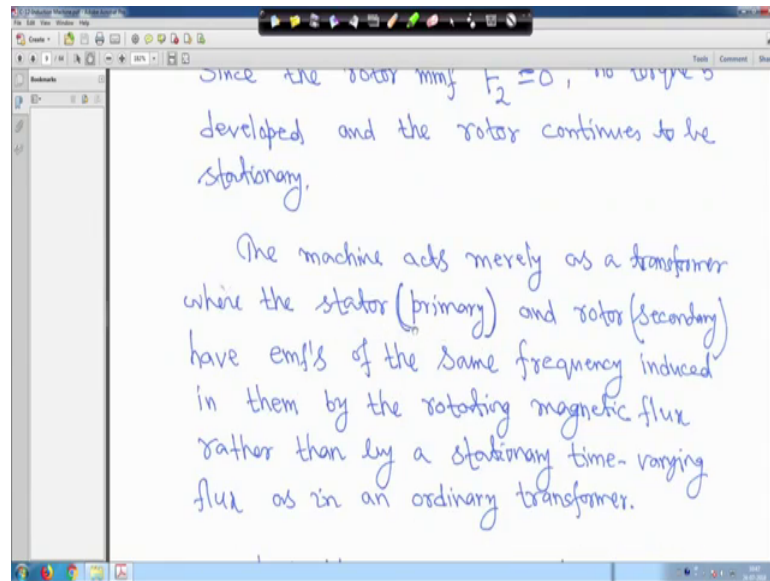 File Edit View Window Help
Create
Tools Comment
Bookmarks
Since the rotor mmf F2 = 0, no torque is
developed and the rotor continues to be
stationary.
The machine acts merely as a transformer
where the stator (primary) and rotor (secondary)
have emf's of the same frequency induced
in them by the rotating magnetic flux
rather than by a stationary time-varying
flux as in an ordinary transformer.